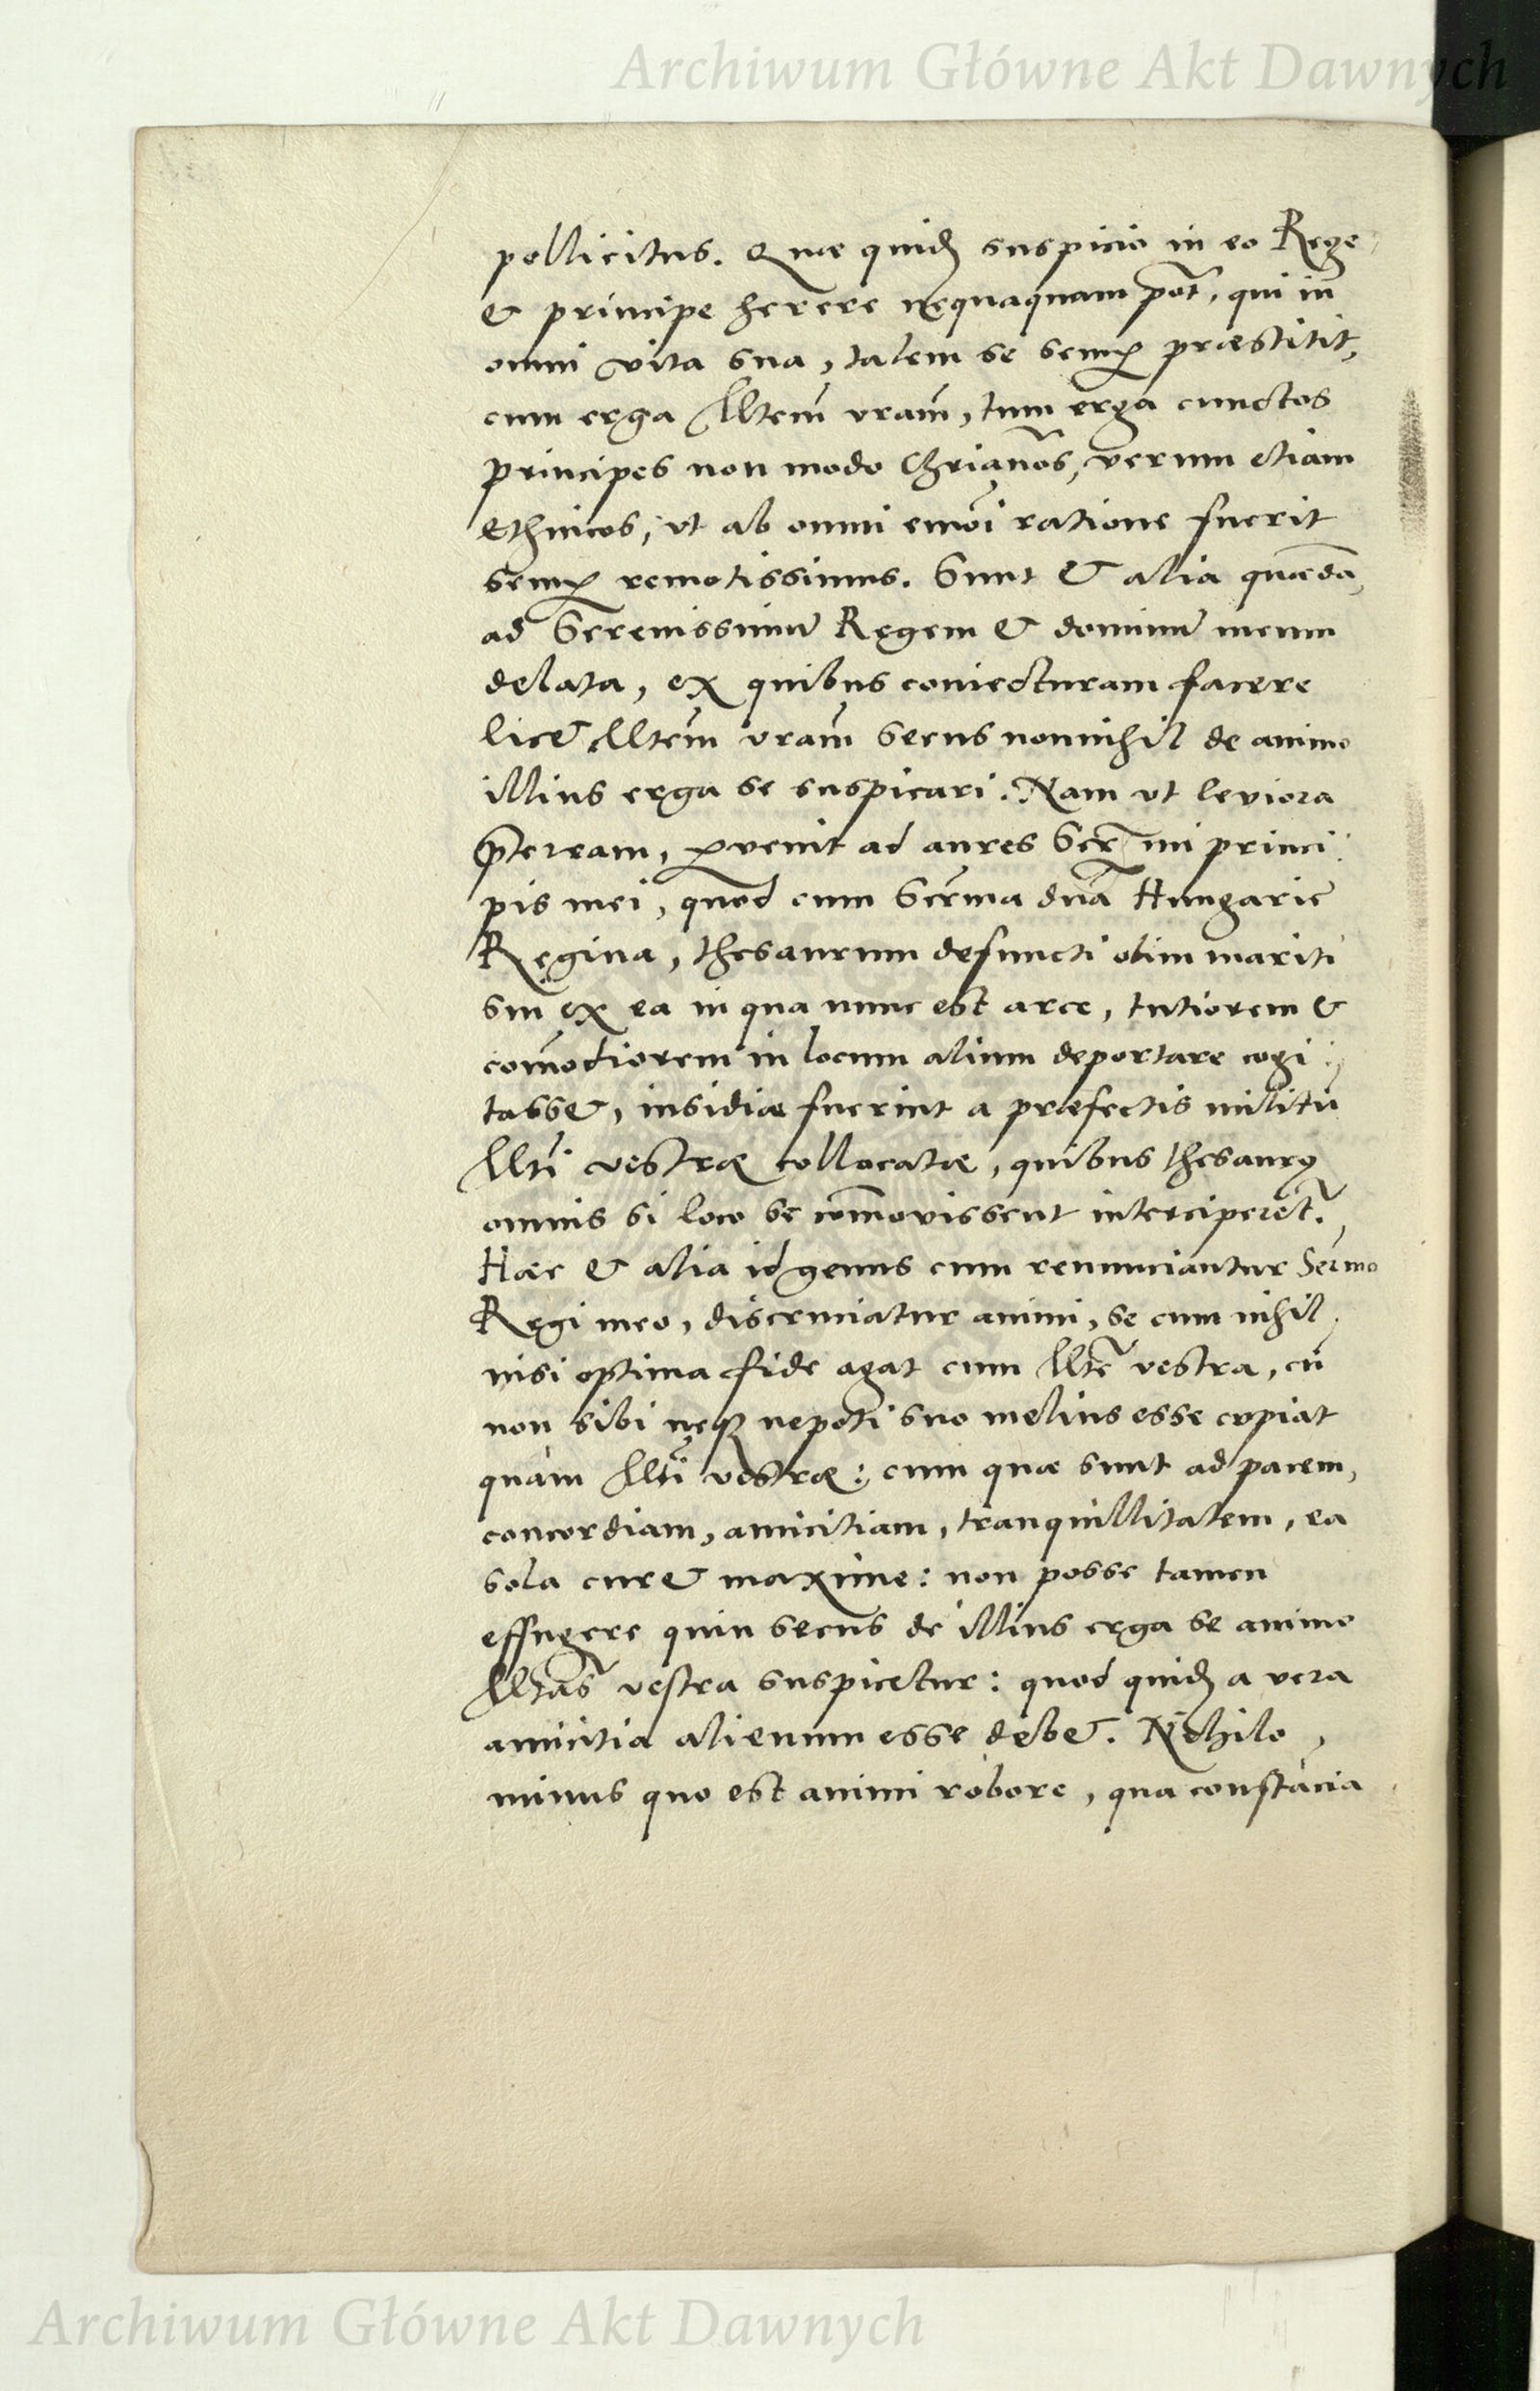 Archiwum Główne Akt Dawnych
pollicitus. Quae quidẽ suspicio in eo Rege
& principe herere nequaquam pot̃, qui in
omni vita sua, talem se semp præstitit,
cum erga Mtem̃ vram̃, tum erga cunctos
principes non modo Chrianos̃, verum etiam
ethnicos, vt ab omni emõi ratione fuerit
semp remotissimus. Sunt & alia quædã
ad Serenissimũ Regem & dominũ meum
delata, ex quibus coniecturam facere
licet Mtem̃ vram̃ secus nonnihil de animo
illius erga se suspicari. Nam vt leviora
p̃teream, pervenit ad aures Serm̃i princi
pis mei, quod cum Serm̃a dnã Hungarie
Regina, thesaurum defuncti olim mariti
sui ex ea in qua nunc est arce, tutiorem &
com̃odiorem in locum alium deportare cogi
tasset, insidiæ fuerint a præfectis militũ
Mti̇̃ vestræ collocatæ, quibus thesaurus
omnis si loco se com̃ovissent interciperet̃.
Hæc & alia id genus cum renunciantur Serm̃o
Regi meo, discruciatur animi, se cum nihil
nisi optima fide agat cum Mtẽ̴ vestra, cũ
non sibi neq nepoti suo melius esse cupiat
quàm Mtĩ vestræ: cum quæ sunt ad pacem,
concordiam, amicitiam, tranquillitatem, ea
sola curet maxime: non posse tamen
effugere quin secus de illius erga se animo
Mtas̃ vestra suspicetur: quod quidẽ a vera
amicitia alienum esse debet. Nihilo
minus quo est animi robore, qua constãcia
Archiwum Główne Akt Dawnych